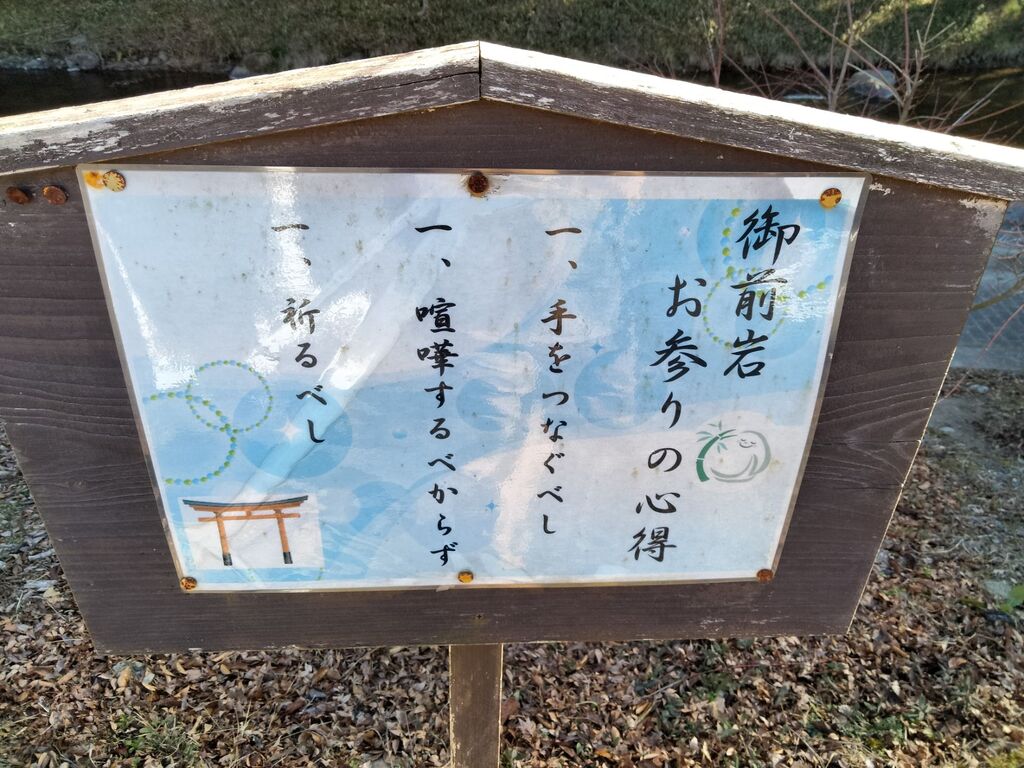 御前岩
お参りの心得
一、手をつなぐべし
一、喧嘩するべからず
一、祈るべし